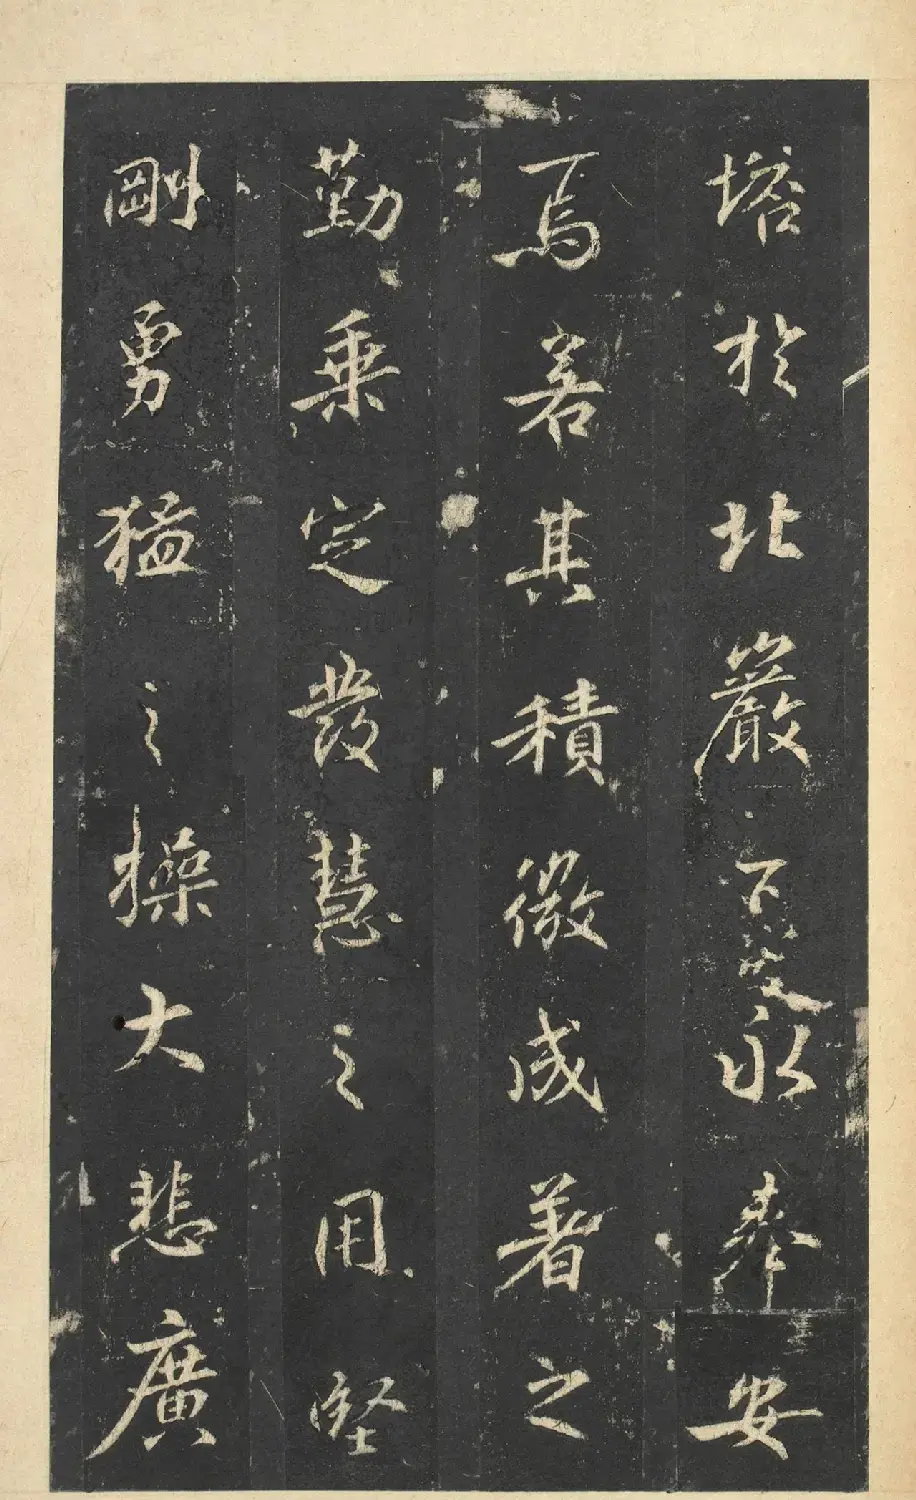 塔於北巖下永奉安
焉若其積微成著之
勤乗定發慧之用堅
剛勇猛之操大悲廣